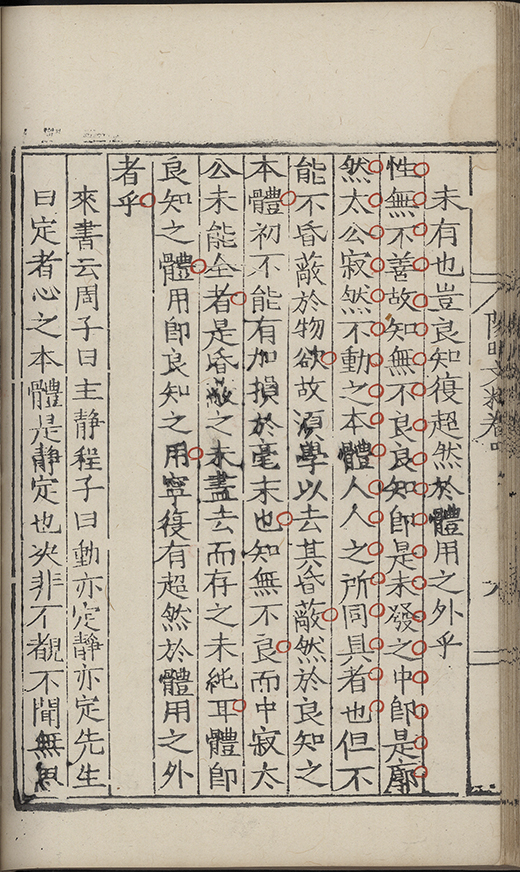 陽明文粹卷
未有也豈良知復超然於體用之外乎
性無不善故知無不良良知即是未發之中即是廓
然太公寂然不動之本體人人之所同具者也但不
能不昏蔽於物欲故湏學以去其昏蔽然於良知之
本體初不能有加損於毫末也知無不良而中寂太
公未能全者是昏蔽之未盡去而存之未純耳體即
良知之體用即良知之用寧復有超然於體用之外
者乎
來書云周子曰主靜程子曰動亦定靜亦定先生
曰定者心之本體是靜定也决非不覩不聞無思